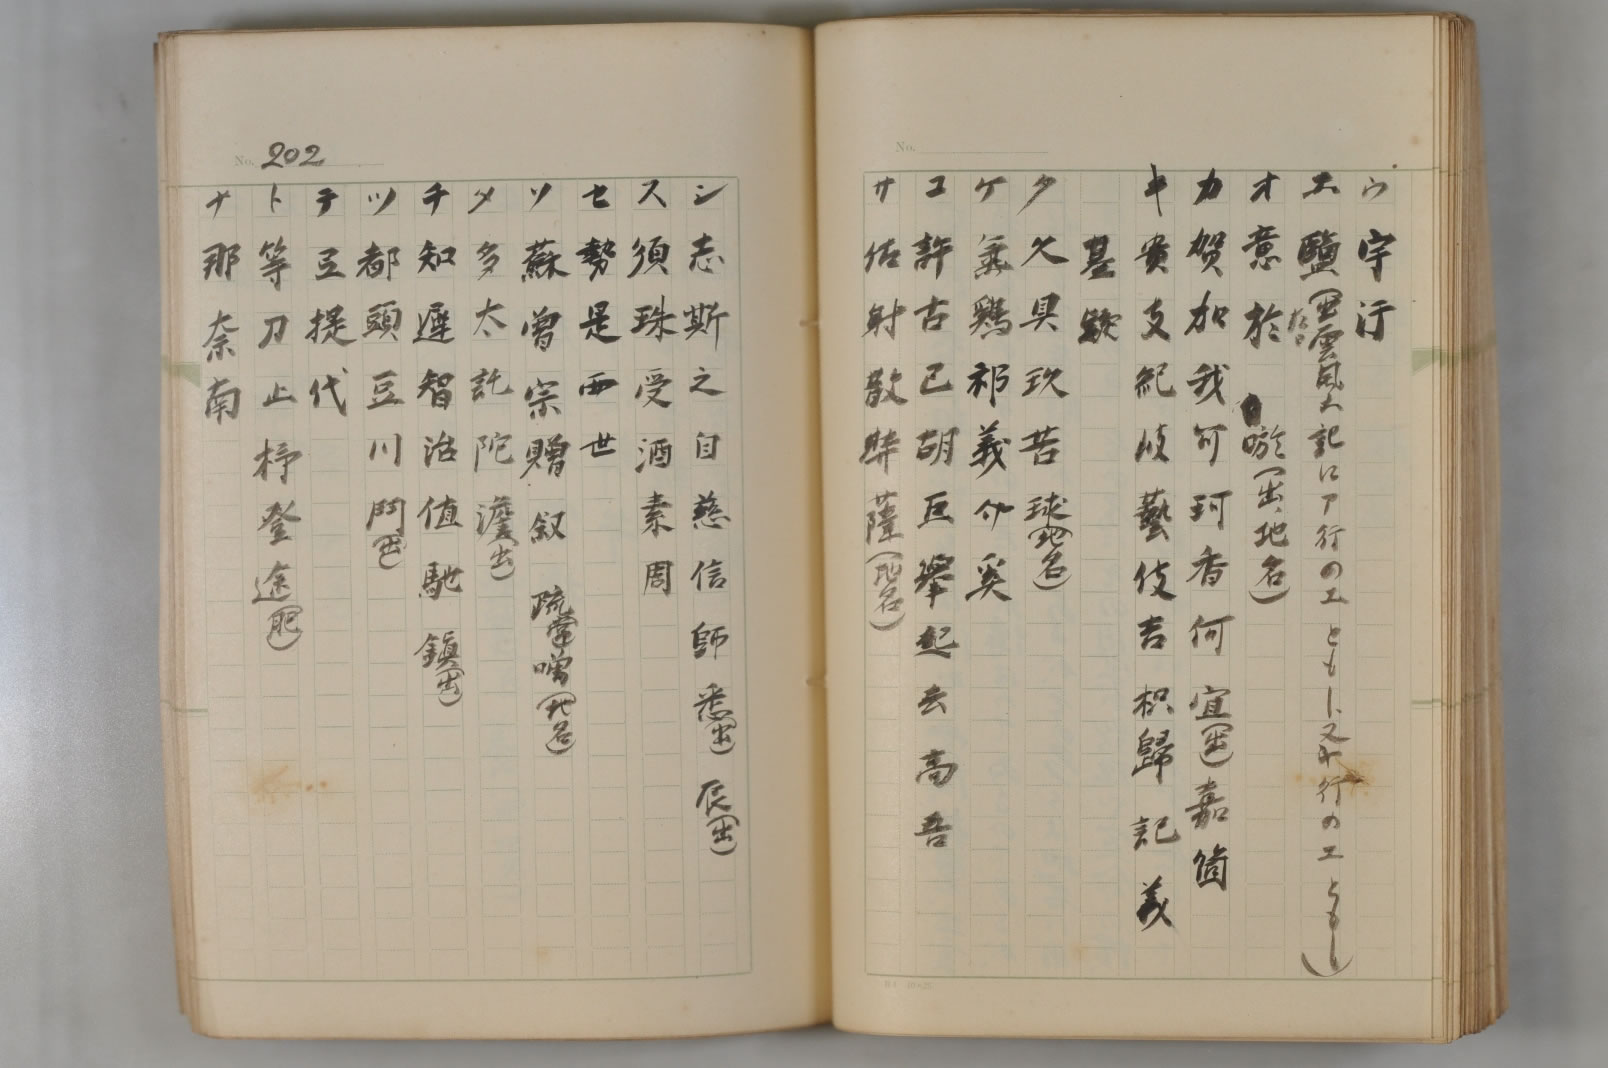 No.
ウ 宇 汙
エ 鹽(出雲風土記にア行のエともし、又ヤ行のエともし)
オ 意 於 唹(出、地名)
カ 賀 加 我 可 珂 香 何 宜(出) 嘉 箇
キ 貴 支 紀 岐 藝 伎 吉 枳 歸 記 義
基
ク 久 具 玖 苦 球(地名)
ケ 氣 鷄 祁 義 介 奚
コ 許 古 己 胡 巨 擧 起 去 高 吾
サ 佐 射 散 薩(地名)
No. 202
シ 志 斯 之 自 慈 信 師 悉(出) 辰(出)
ス 須 珠 受 酒 素 周
セ 勢 是 西 世
ソ 蘇 曾 宗 贈 叙 噌(地名)
タ 多 太 託 陀 澹(出)
チ 知 遲 智 治 値 馳 鎭(出)
ツ 都 頭 豆 川 鬥(出)
テ 豆 提 代
ト 等 刀 止 杼 登 途(肥)
ナ 那 奈 南